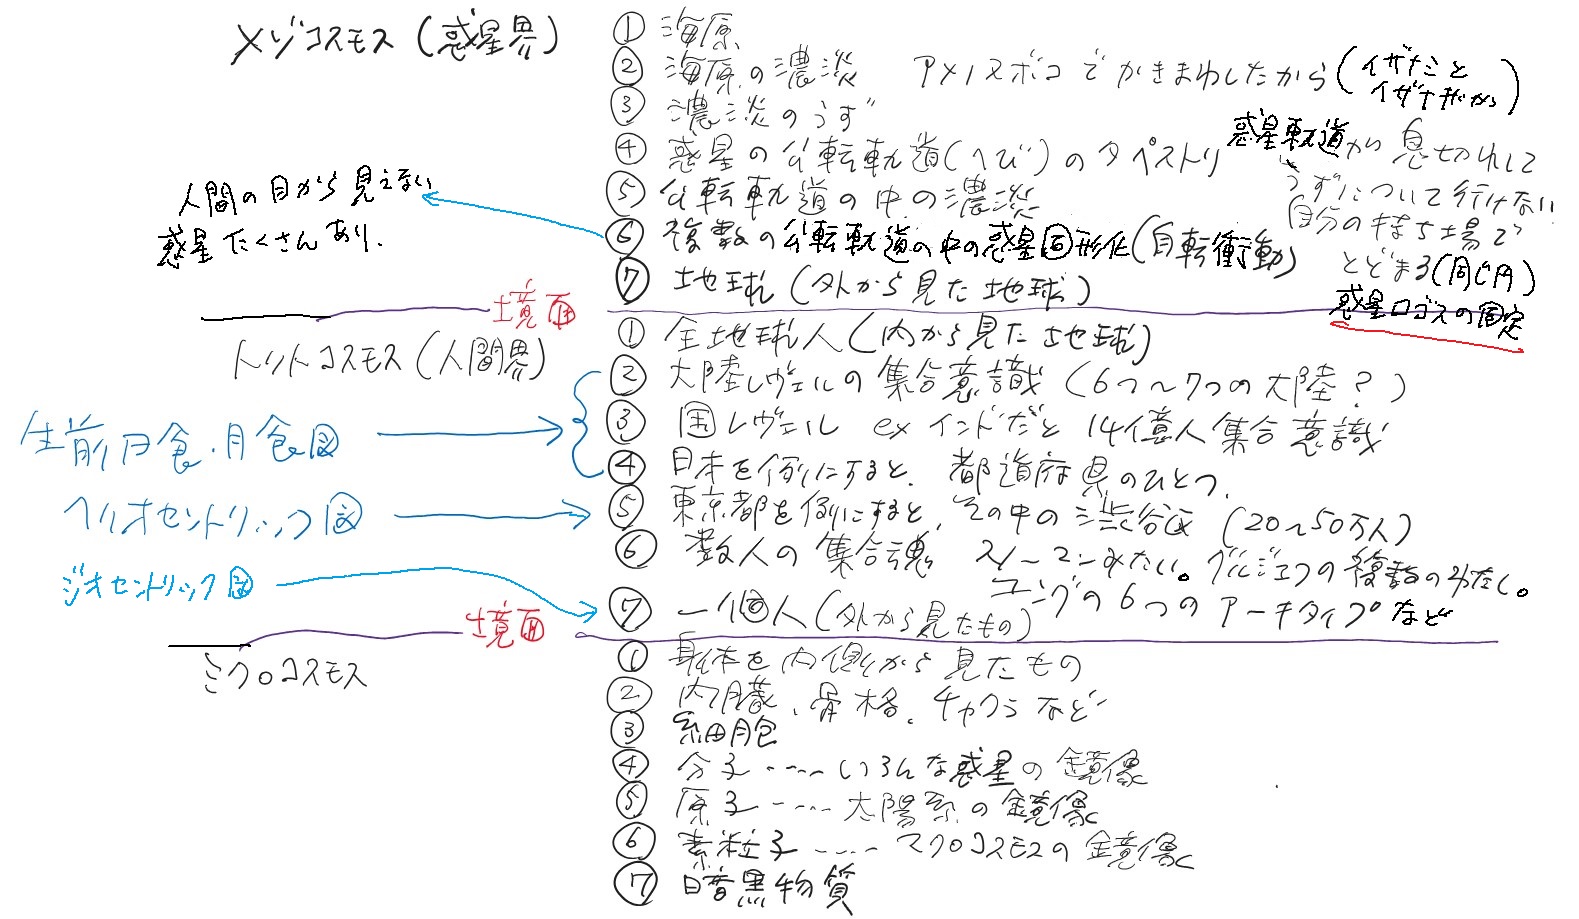 メゾコスモス（惑星界）
① 海原
② 海原の濃淡　アメノヌボコでかきまわしたから（イザナミとイザナギから）
③ 濃淡のうず
④ 惑星の公転軌道（へび）のタペストリ
惑星軌道が息切れして
うずについて行けない
自分の持ち場で
とどまる（同じ円）
惑星ロゴスの固定
⑤ 公転軌道の中の濃淡
⑥ 複数の公転軌道の中の惑星固形化（自転衝動）
人間の目から見えない
惑星たくさんあり．
⑦ 地球（外から見た地球）
境面
トリトコスモス（人間界）
① 全地球人（内から見た地球）
② 大陸レヴェルの集合意識（6つ〜7つの大陸？）
③ 国レヴェル　ex インドだと 14億人集合意識
④ 日本を例にすると、都道府県のひとつ．
生前日食・月食図
⑤ 東京都を例にすると、その中の渋谷区（20〜50万人）
ヘリオセントリック図
⑥ 数人の集合魂　スパーマンみたい。グルジェフの複数の私。
ユングの6つのアーキタイプなど
ジオセントリック図
⑦ 一個人（外から見たもの）
境面
ミクロコスモス
① 身体を内側から見たもの
② 内臓、骨格、チャクラなど
③ 細胞
④ 分子----いろんな惑星の鏡像
⑤ 原子----太陽系の鏡像
⑥ 素粒子----マクロコスモスの鏡像
⑦ 暗黒物質